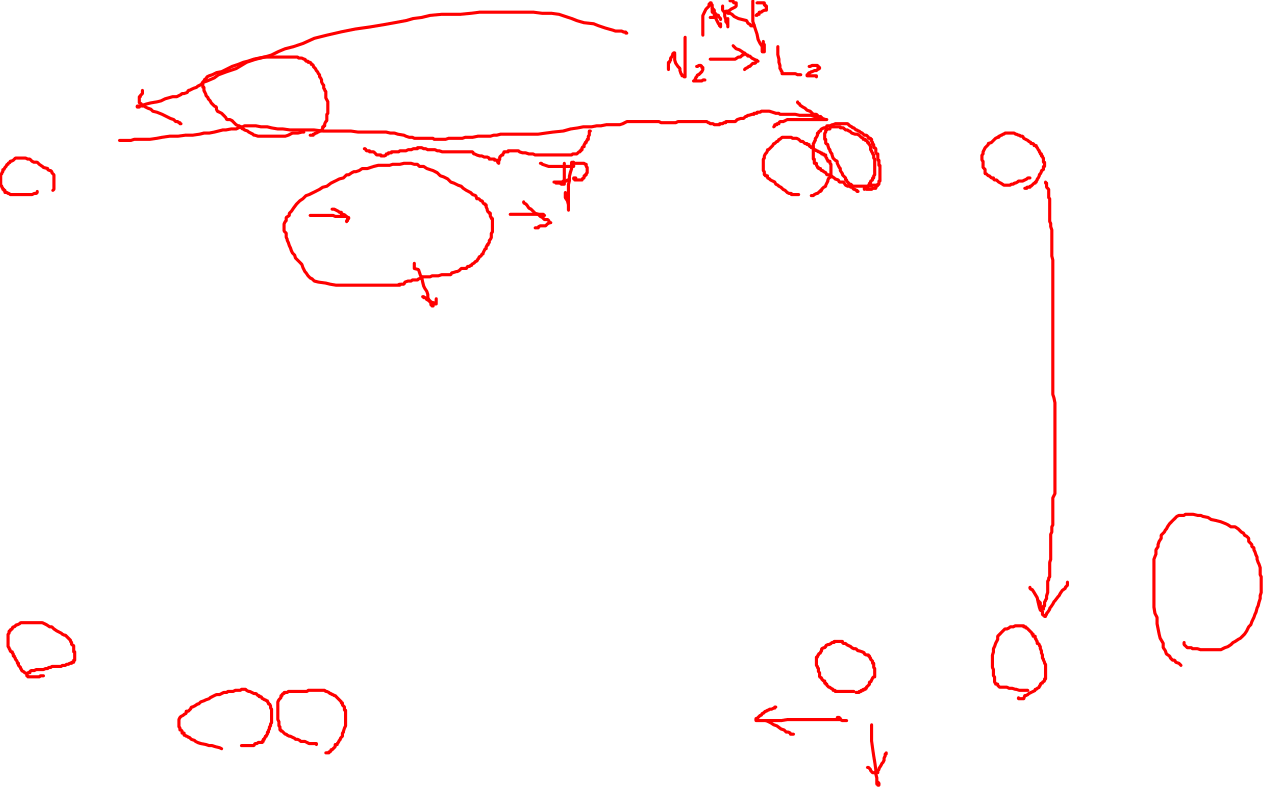 ARP
N2 → L2
IP